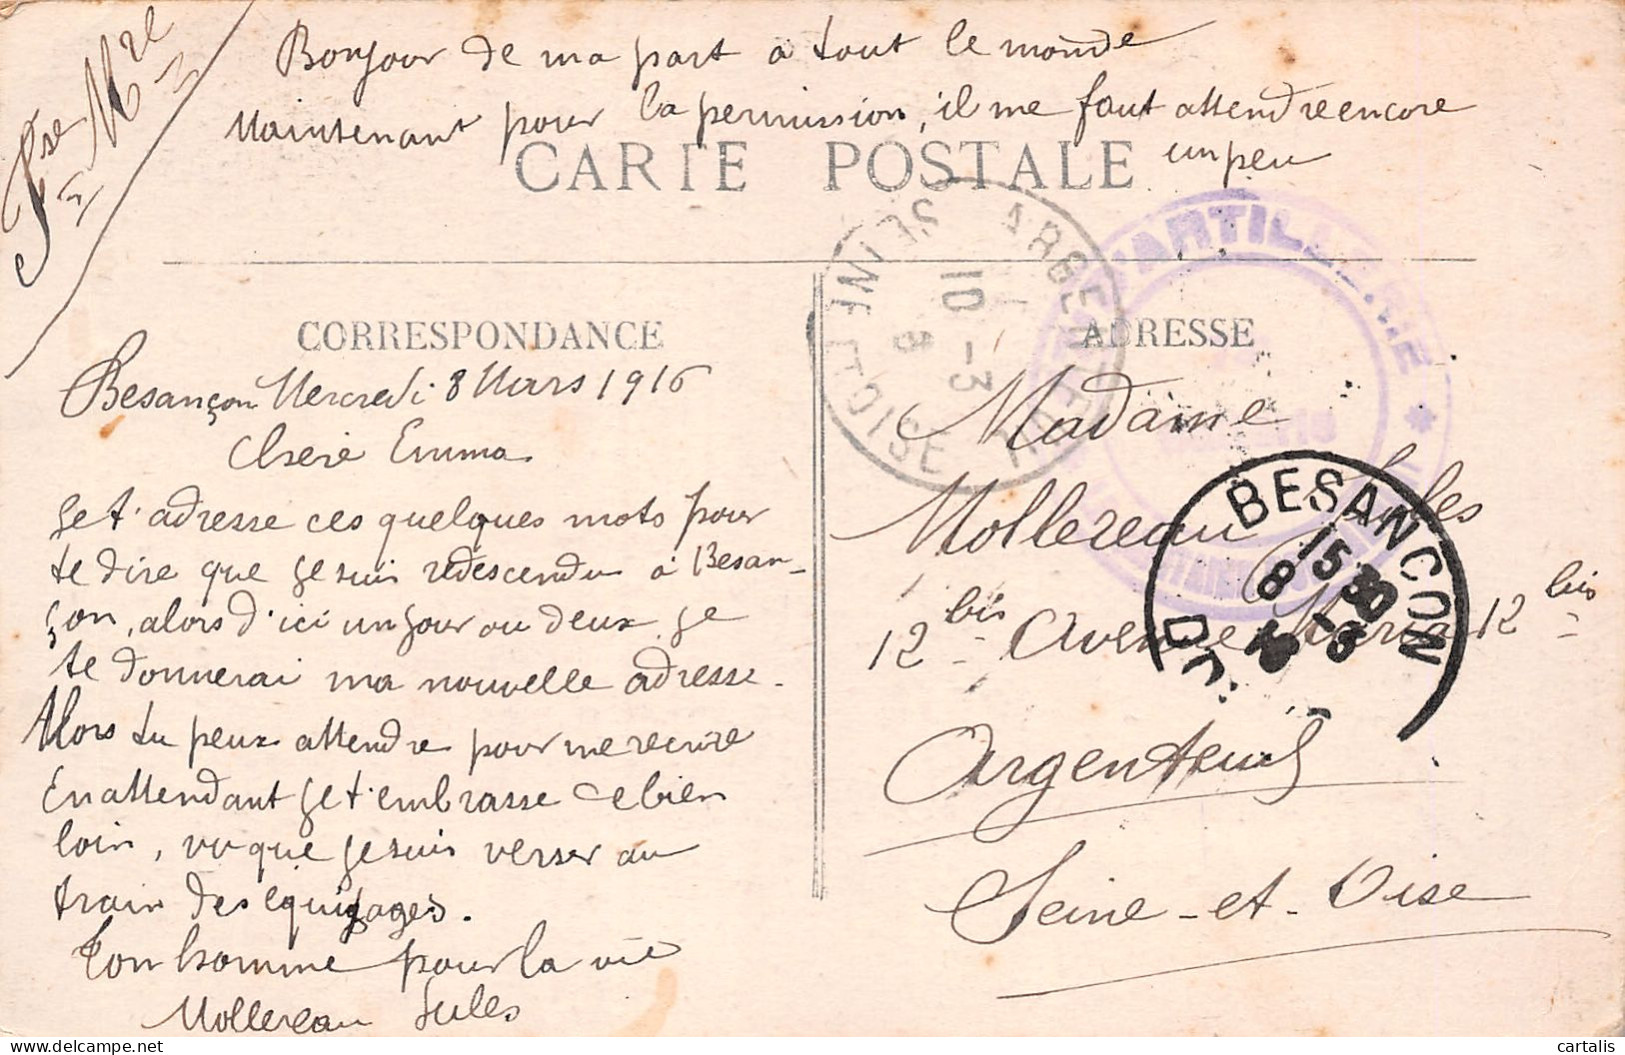 Fse Mre
Bonjour de ma part a tout le monde
Maintenant pour la permission, il me faut attendre encore
un peu
CARTE POSTALE
CORRESPONDANCE
Besançon Mercredi 8 Mars 1916
Chere Emma
Je t'adresse ces quelques mots pour
te dire que je suis redescendu a Besan-
çon, alors d'ici un jour ou deux je
te donnerai ma nouvelle adresse.
Alors tu peux attendre pour me recrire
En attendant je t'embrasse de bien
loin, vu que je suis verser au
train des équipages.
Ton homme pour la vie
Mollereau Jules
ADRESSE
Madame
Mollereau Jules
12 bis Avenue 12 bis
Argenteuil
Seine-et-Oise
ARGENTEUIL
SEINE ET OISE
10-3
ARTILLERIE
BESANCON
15 30
8-3
16
DOU
cartalis
www.delcampe.net